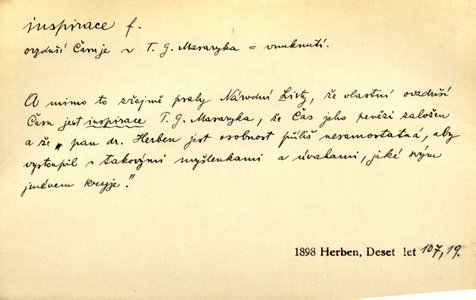 inspirace f.
ovzduší Času je z T. G. Masaryka = vnuknutí.
A mimo to zřejmě psaly Národní Listy, že vlastní ovzduší
Času jest inspirace T. G. Masaryka, že Čas jeho penězi založen
a že „pan dr. Herben jest osobnost příliš nesamostatná, aby
vystoupil s takovými myšlenkami a úvahami, jaké svým
jménem kryje."
1898 Herben, Deset let 107, 19.